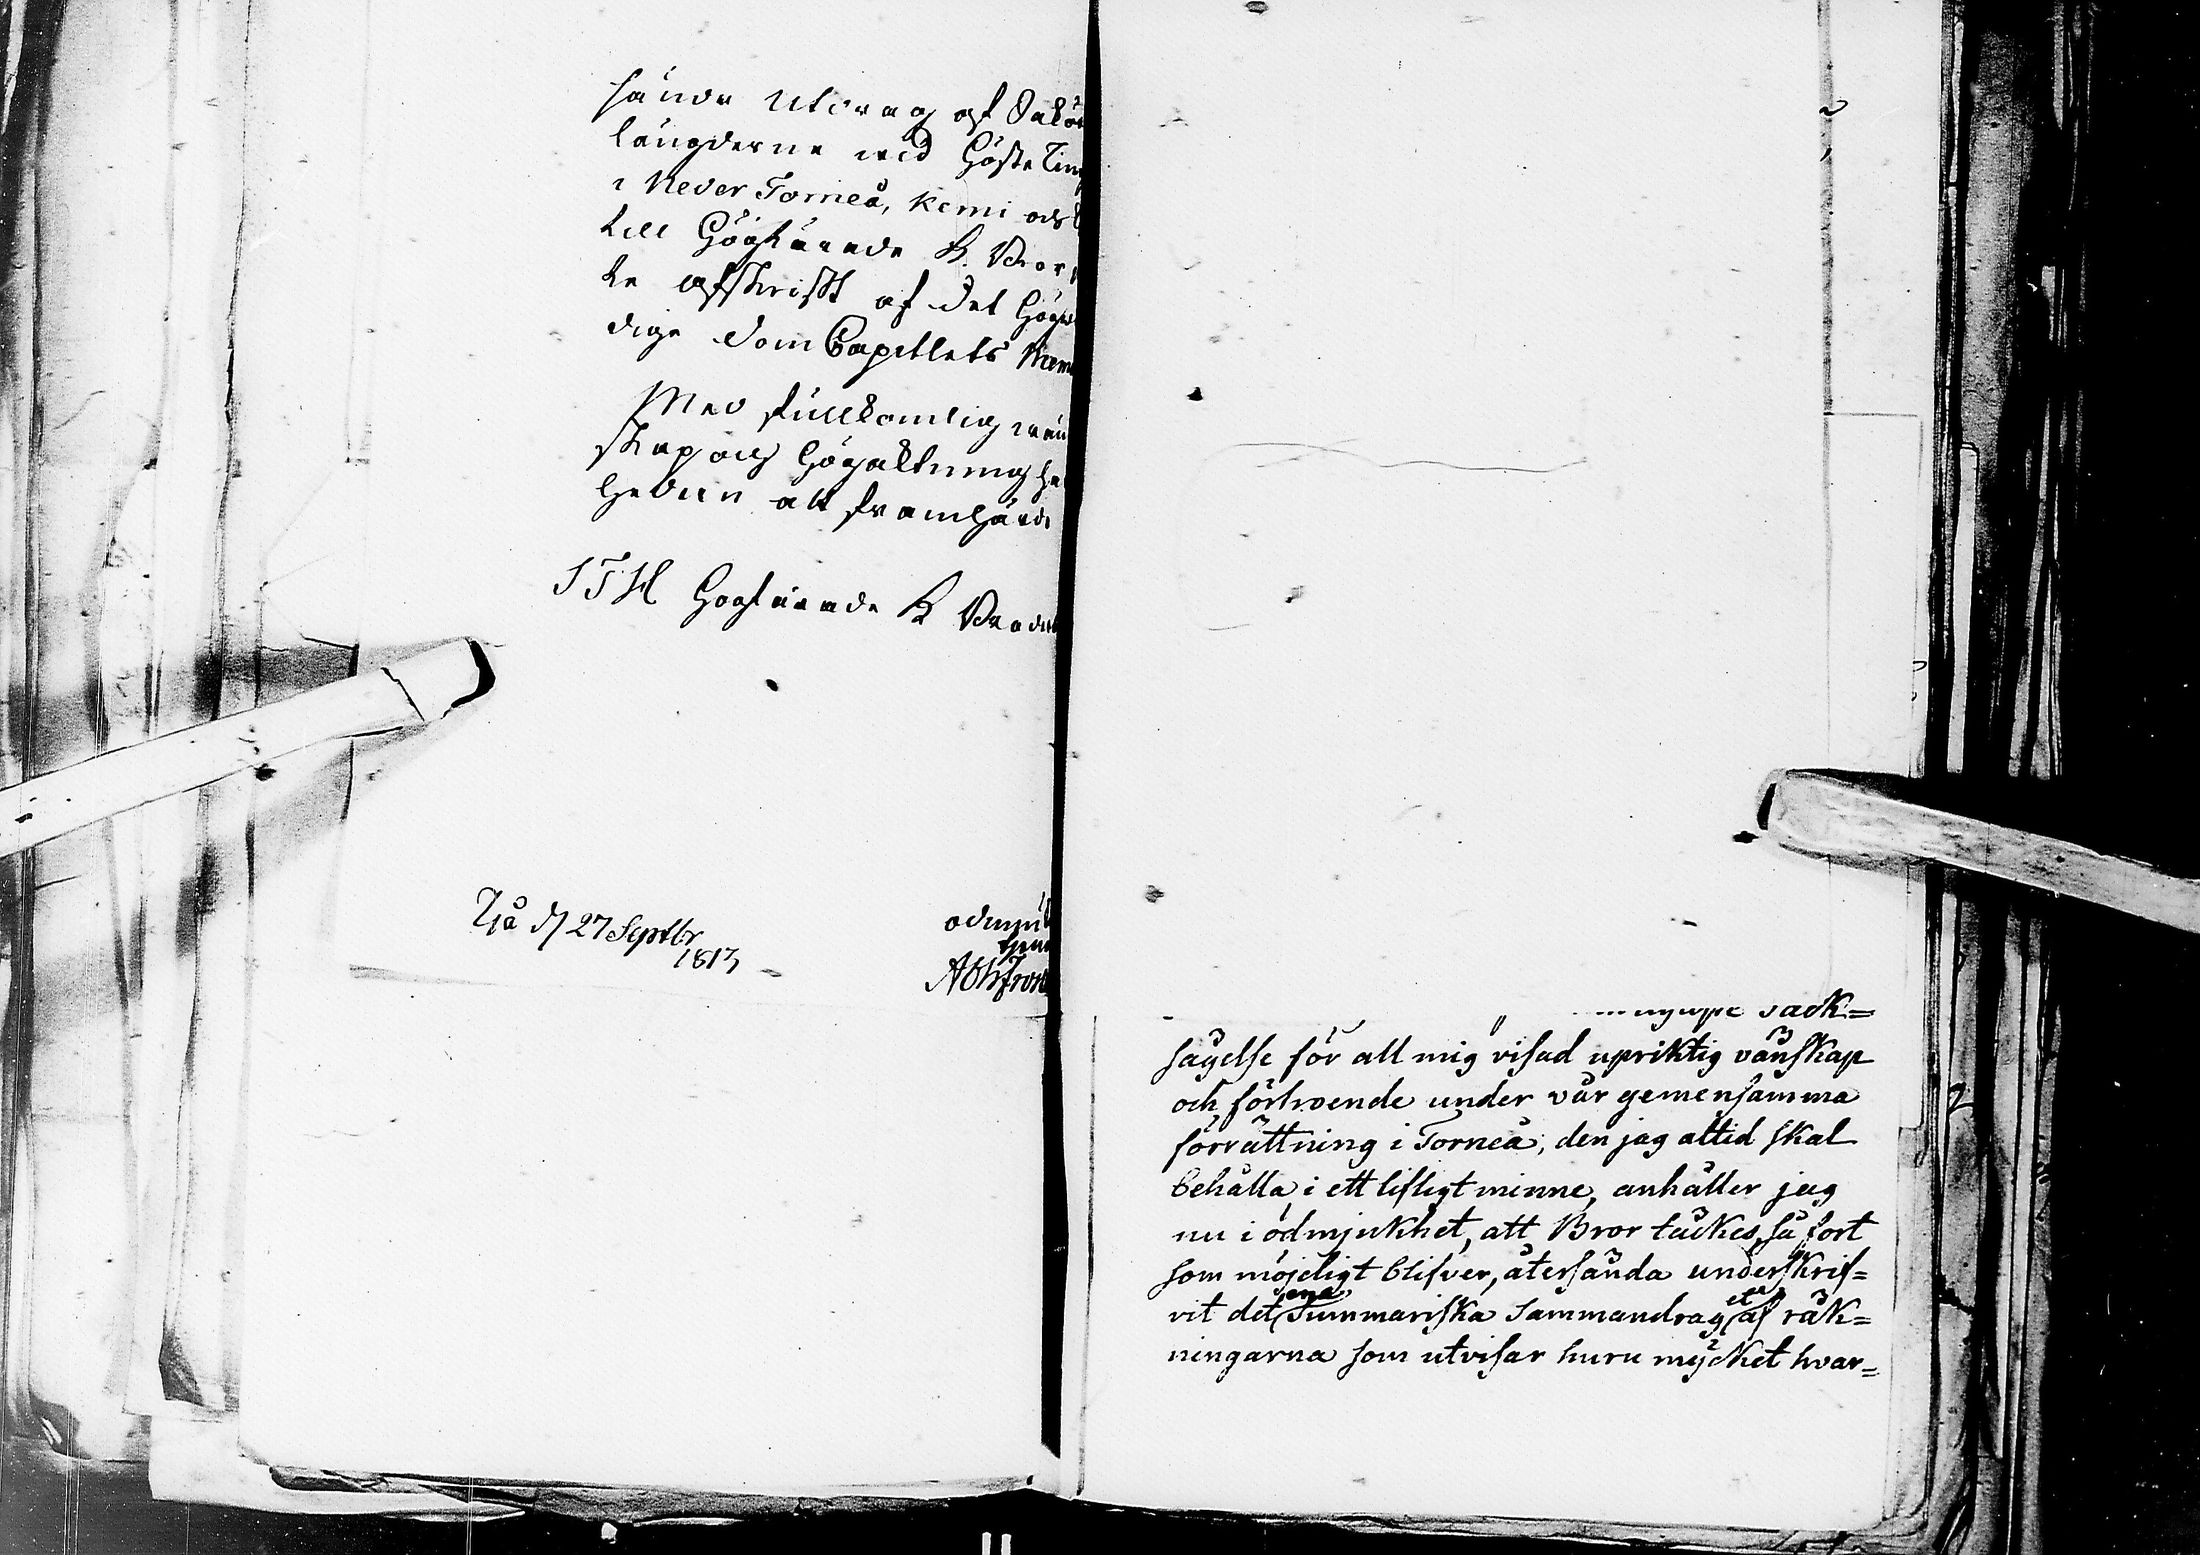 sända Utdrag af Saköres
längderne wid Höste Ting
i Neder Torneå, Kemi och
till Högtärade H. Bror
te afskrift af det Högw
dige Dom Capitlets
Med fullkomlig wän
skap och Högaktning ha
hedren att framhärda
STH Högtärade H Broders
Uå d 27 Septbr
1813
ödmjuk
tjena
sack=
sägelse för all mig visad upriktig vänskap
och förtroende under vår gemensamma
förrättning i Torneå, den jag altid skal
behålla i ett lifligt minne, anhåller jag
nu i ödmjukhet, att Bror täckes, så fort
som möjeligt blifver, återsända underskrif=
vit det ena Summariska Sammandraget af räk=
ningarna som utvisar huru mycket hvar=